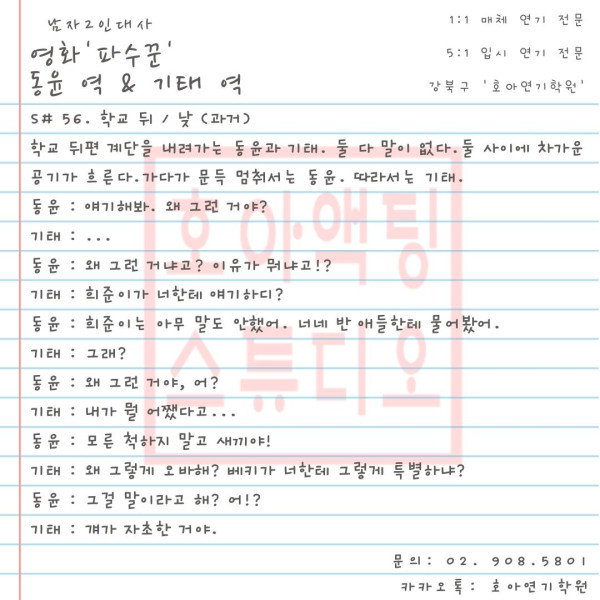 남자2인대사
1:1 매체 연기 전문
영화'파수꾼'
5:1 입시 연기 전문
동윤 역 & 기태 역
강북구 '호아연기학원'
S# 56. 학교 뒤 / 낮 (과거)
학교 뒤편 계단을 내려가는 동윤과 기태. 둘 다 말이 없다.둘 사이에 차가운
공기가 흐른다.가다가 문득 멈춰서는 동윤. 따라서는 기태.
동윤 : 얘기해봐. 왜 그런 거야?
기태 : ...
동윤 : 왜 그런 거냐고? 이유가 뭐냐고!?
기태 : 희준이가 너한테 얘기하디?
동윤 : 희준이는 아무 말도 안했어. 너네 반 애들한테 물어봤어.
기태 : 그래?
동윤 : 왜 그런 거야, 어?
기태 : 내가 뭘 어쨌다고...
동윤 : 모른 척하지 말고 새끼야!
기태 : 왜 그렇게 오바해? 베키가 너한테 그렇게 특별하냐?
동윤 : 그걸 말이라고 해? 어!?
기태 : 걔가 자초한 거야.
호아액팅
스튜디오
문의: 02. 908.5801
카카오톡: 호아연기학원